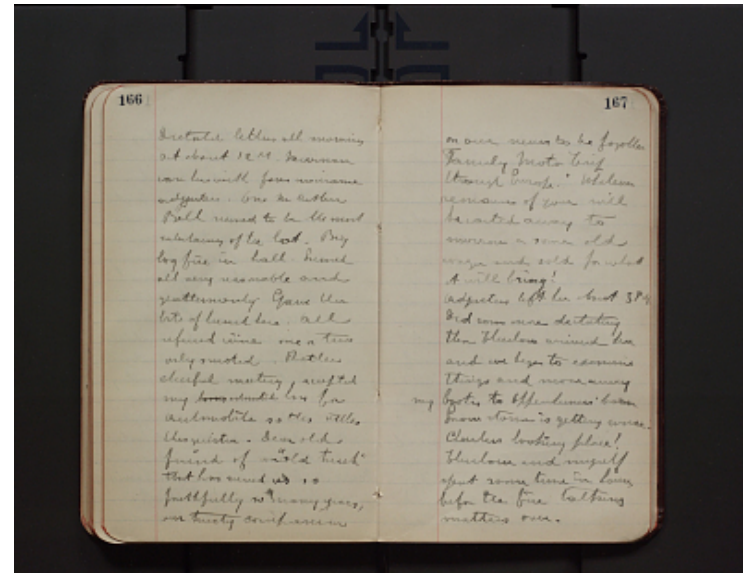 166
Dictated letters all morning
at about 12 M.
came here with four insurance
adjusters. One Mr Arthur
Ball seemed to be the most
of the lot. Big
log fire in hall. Seemed
all very reasonable and
gentlemanly Gave them
bite of lunch here. All
refused wine one or two
only smoked. Rather
cheerful meeting, accepted
my loss for
automobile so this settles
this question. Dear old
friend of
that has served us so
faithfully so many years,
our trusty companion
167
on our never to be forgotten
"Family Motor Trip
through Europe." Whatever
remains of you will
be carted away to
morrow in some old
wagon and sold for what
it will bring!
Adjusters left here about 3 P.M.
Did some more dictating
then arrived here
and we began to examine
things and move away
my books to barn
Snow storm is getting worse.
Cheerless looking place!
and myself
spent some time in
before the fire talking
matters over.